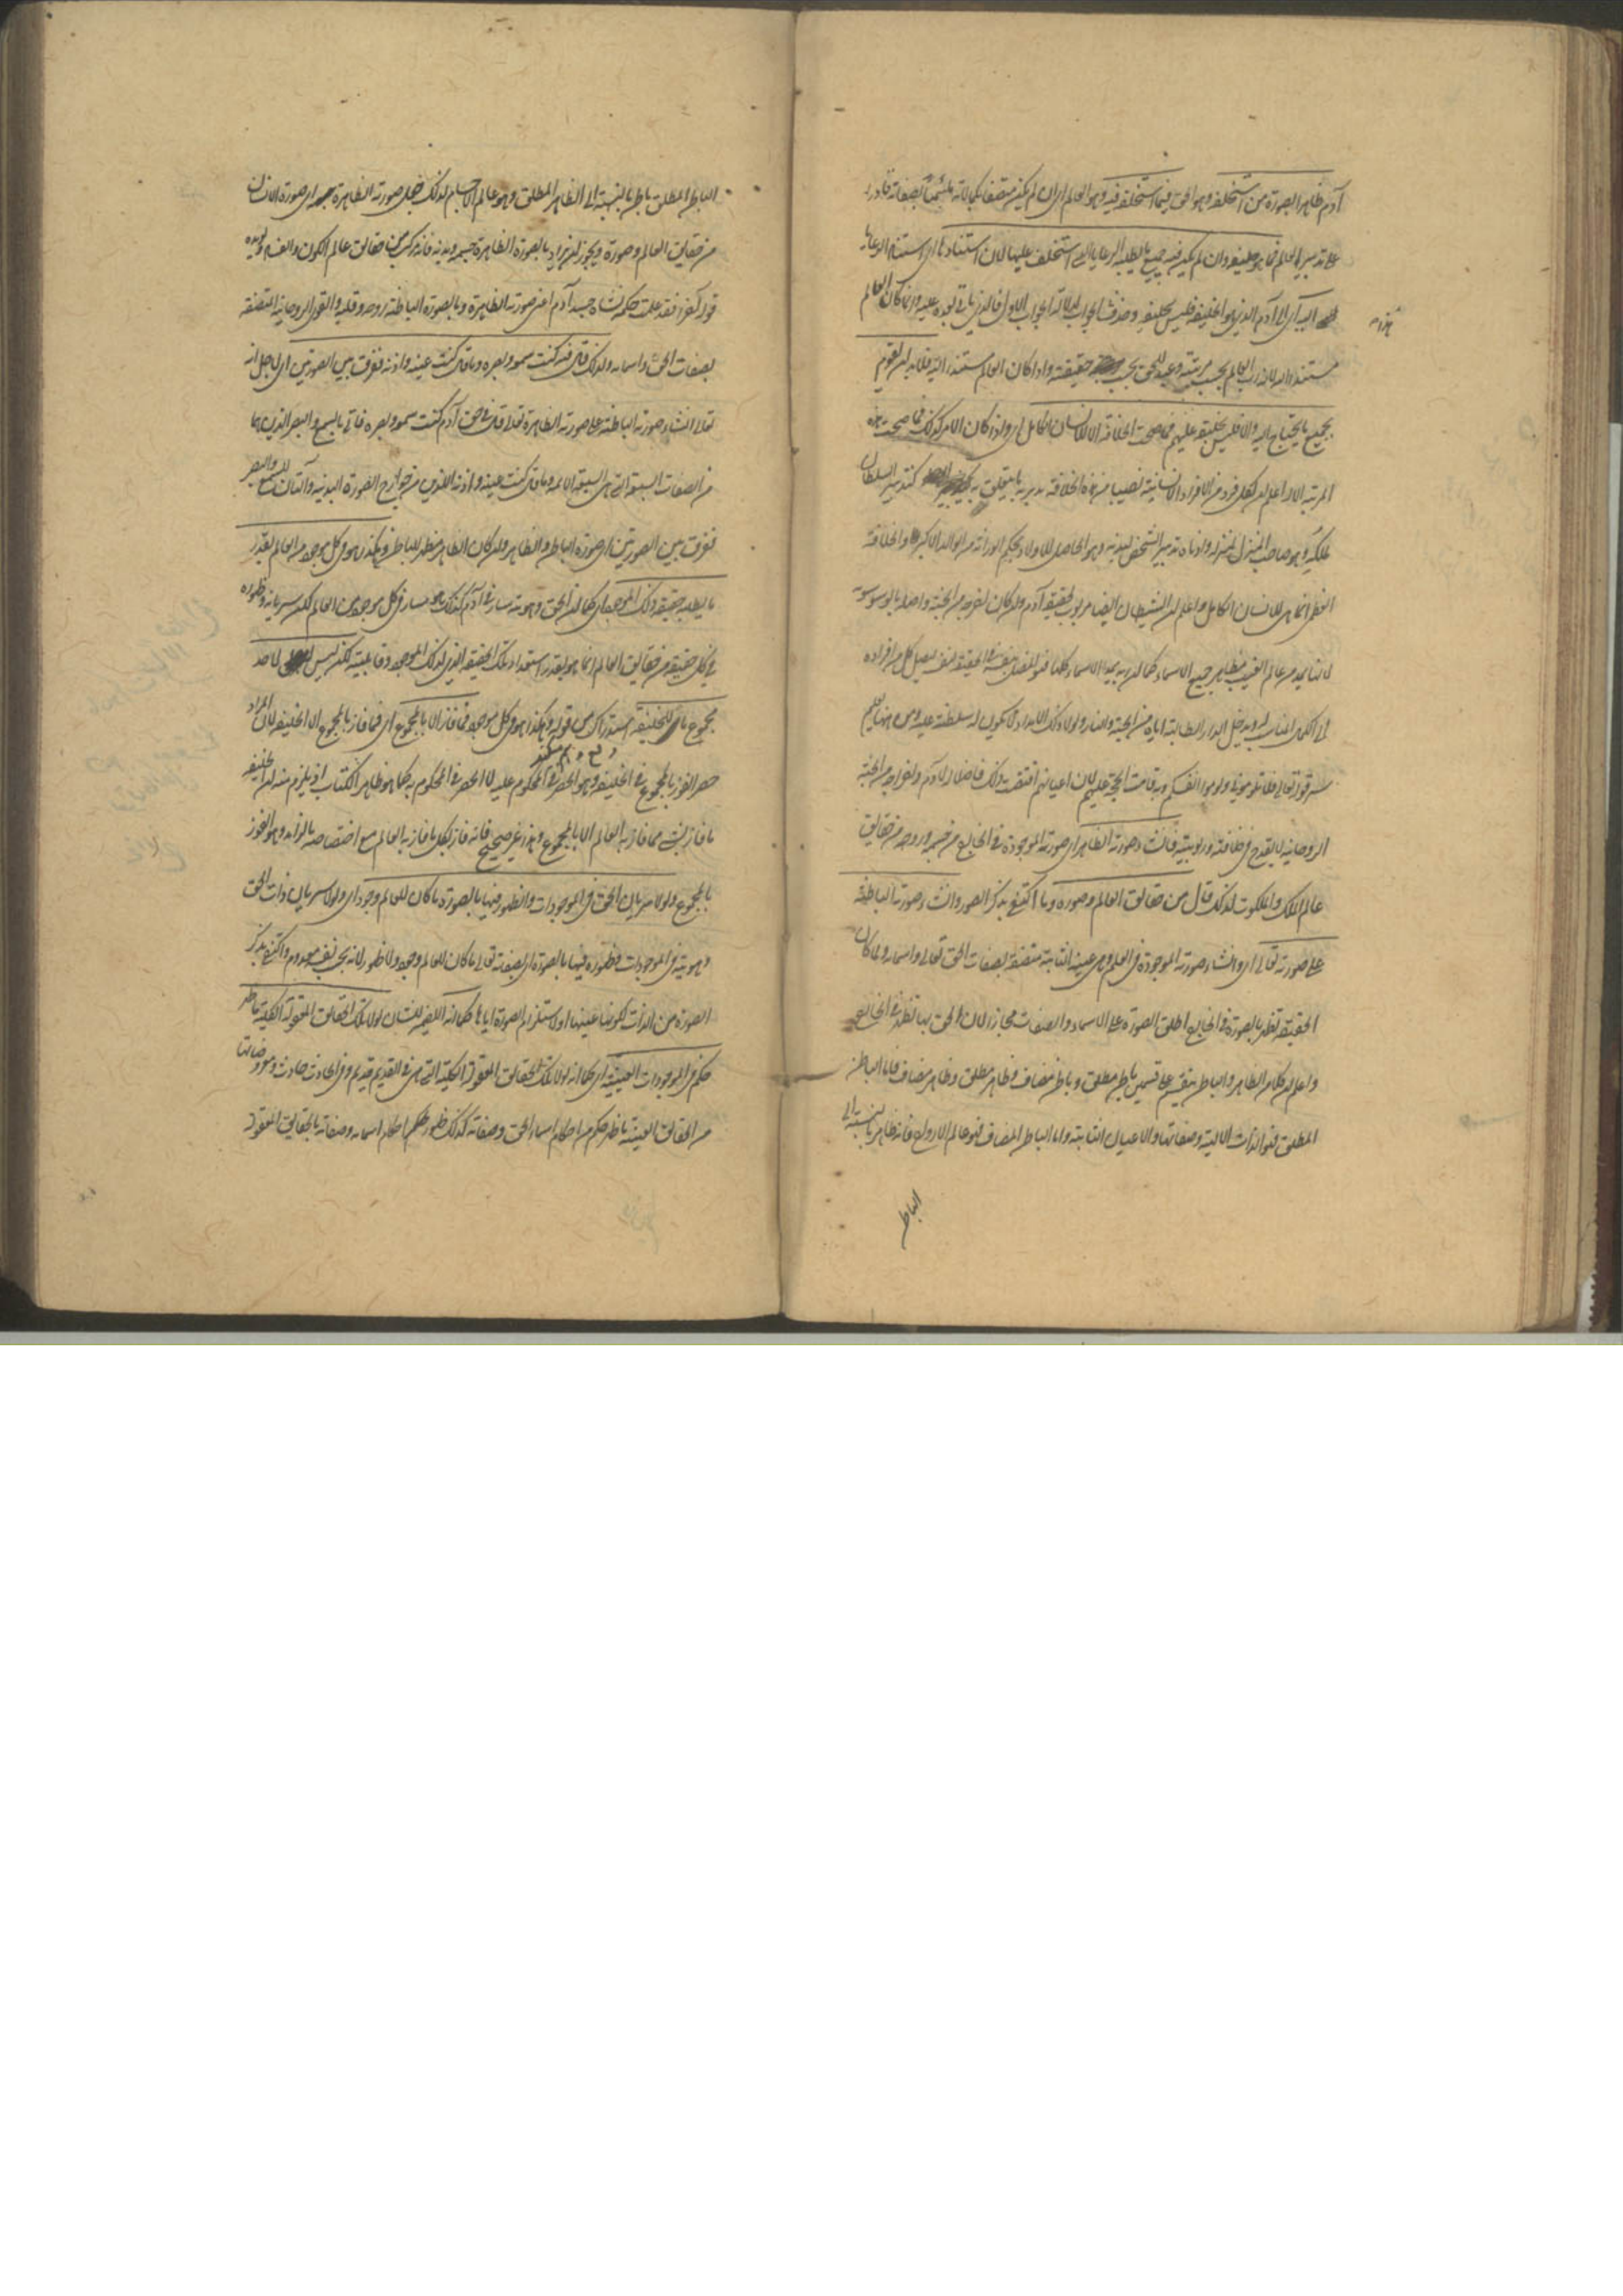 آدم ظاهرا بصورة من استخلفه وهو الحق فيما استخلفه فيه وهو العالم اى ان لم يكن متصفا بكمالاته متسما بصفاته قادرا
على تدبير العالم فما هو خليفة وان لم يكن فيه جميع ما يطلبه الرعايا التى استخلف عليها لان استنادها اى استناد الرعايا
اليه اى الى آدم الذى هو الخليفة فليس بخليفة وحذف الجواب لدلالة الجواب الاول فالذى ياتى بعده عليه وانما كان العالم
مستندا اليه لانه رب العالم بحسب مرتبته وعبد للحق بحسب حقيقته واذا كان العالم مستندا اليه فلابد ان يقوم
بجميع ما يحتاج اليه والا فليس بخليفة عليهم فما صحت الخلافة الا للانسان الكامل اى ولذا كان الامر كذلك فما صحت هذه
المرتبة الا له اعلم ان لكل فرد من الافراد الانسانية نصيبا من هذه الخلافة يدبر به ما يتعلق به كتدبير السلطان
لملكه وهو صاحب المنزل لمنزله وادناه تدبير الشخص لبدنه وهو الحاصل للاولاد بحكم الوراثة من الوالد الاكبر والخلافة
العظمى انما هى للانسان الكامل واعلم ان الشيطان ايضا مربوب لحقيقة آدم وان كان اخرجه من الجنة واضله بالوسوسة
لانها تمد من عالم الغيب مظاهر جميع الاسماء كما ان ربه يمد الاسماء كلها فهو المضل بنفسه فى الحقيقة لنفسه ليصل كل من افراده
الى الكمال المناسب له ويدخل الدار الطالبة اياه من الجنة والنار ولولا ذلك الامداد لم يكن له سلطنة عليه ومن هنا يعلم
سر قوله تعالى فلا تلومونى ولوموا انفسكم وبه قامت الحجة عليهم لان اعيانهم اقتضت ذلك فاضلاله لآدم واخراجه من الجنة
الروحانية لا يقدح فى خلافته وربوبيته فانشاء صورته الظاهرة اى صورته الموجودة فى الخارج من جسمه وروحه من حقايق
عالم الملك والملكوت لذلك قال من حقايق العالم وصوره وما اكتفى بذكر الصور وانشاء صورته الباطنة
على صورته تعالى اى وانشاء صورته الموجودة فى العلم وهى عينه الثابتة متصفة بصفات الحق تعالى واسمائه ولما كان
الحقيقة تظهر بالصورة فى الخارج اطلق الصورة على الاسماء والصفات مجازا لان الحق بها تظهر فى الخارج
واعلم ان كلا من الظاهر والباطن ينقسم على قسمين باطن مطلق وباطن مضاف وظاهر مطلق وظاهر مضاف فاما الباطن
المطلق فهو الذات الالهية وصفاتها والاعيان الثابتة واما الباطن المضاف فهو عالم الارواح فانه ظاهر بالنسبة الى
الباطن
الباطن المطلق باطن بالنسبة الى الظاهر المطلق وهو عالم الاجسام لذلك جعل صورته الظاهرة اى صورة الانسان
من حقايق العالم وصوره ويجوز ان يراد بالصورة الظاهرة جسمه وبدنه فانه مركب من حقايق عالم الكون والفساد ويؤيده
قوله آخرا فقد علمت حكمة نشأة جسد آدم اعنى صورته الظاهرة وبالصورة الباطنة روحه وقلبه والقوى الروحانية المتصفة
بصفات الحق واسمائه ولذلك قال فيه كنت سمعه وبصره وما قال كنت عينه واذنه ففرق بين الصورتين اى لاجل انه
تعالى انشاء صورته الباطنة على صورته الظاهرة تعالى قال فى حق آدم كنت سمعه وبصره فاتى بالسمع والبصر الذين هما
من الصفات السبعة التى هى السبعة الائمة وما قال كنت عينه واذنه اللذين من جوارح الصورة البدنية وآلتان للسمع والبصر
ففرق بين الصورتين اى صورة الباطن والظاهر وان كان الظاهر مظهر للباطن وهكذا هو فى كل موجود من العالم بقدر
ما يطلبه حقيقة ذلك الموجود اى كما ان الحق وهويته سار فى آدم كذلك هو سار فى كل موجود من العالم لكن سريانه وظهوره
فى كل حقيقة من حقايق العالم انما هو بقدر استعداد تلك الحقيقة التى لذلك الموجود وقابليته لكن ليس لاحد
مجموع ما للخليفة استدراك من قوله وهكذا هو فى كل موجود فما فاز الا بالمجموع اى فما فاز بالمجموع الا الخليفة لان المراد
حصر الفوز بالمجموع فى الخليفة وهو الحصر فى المحكوم عليه لا الحصر فى المحكوم به كما هو ظاهر الكتاب اذ يلزم منه ان الخليفة
ما فاز بشئ مما فاز به العالم الا بالمجموع وهذا غير صحيح فانه فاز بكل ما فاز به العالم مع اختصاصه بالزائد وهو الفوز
بالمجموع ولولا سريان الحق فى الموجودات والظهور فيها بالصورة ما كان للعالم وجود اى ولولا سريان ذات الحق
وهويته فى الموجودات وظهوره فيها بالصورة اى بصفته تعالى ما كان للعالم وجود ولا ظهور لانه بحسب نفسه معدوم واكتفى بذكر
الصورة من الذات لكونها عينها او لاستلزام الصورة اياها كما انه الضمير للشان لولا تلك الحقايق المعقولة الكلية ما ظهر
حكم فى الموجودات العينية اى كما انه لولا تلك الحقايق المعقولة الكلية التى هى فى القديم قديم وفى الحادث حادث ومعروضاتها
من الحقايق العينية ما ظهر حكم من احكام اسماء الحق وصفاته كذلك ظهور حكم احكام اسمائه وصفاته بالحقايق المعقولة